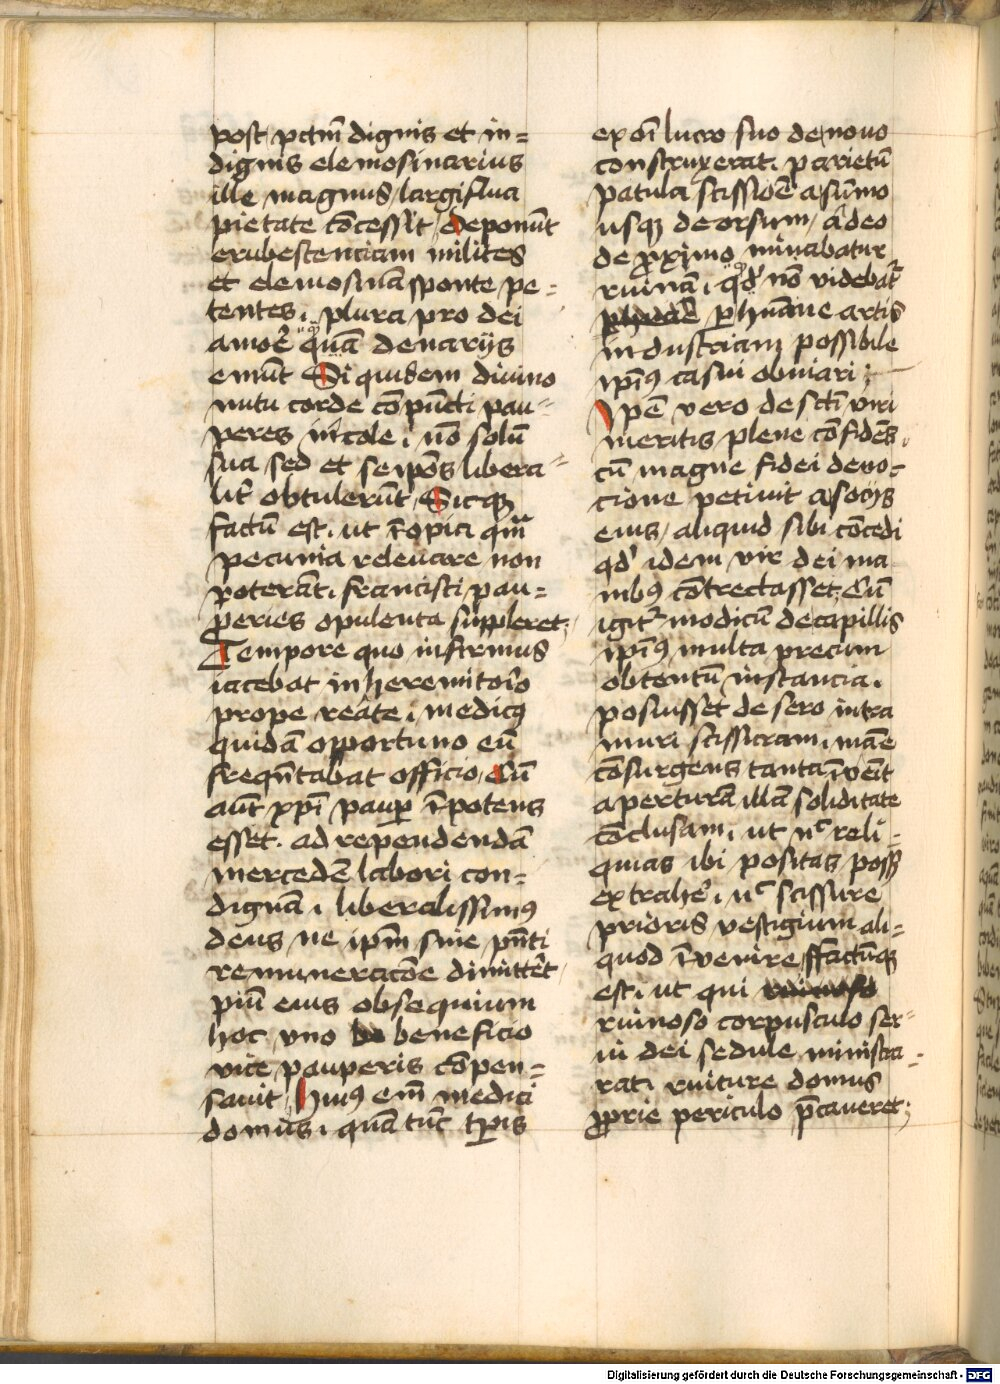 post pctm̄ dignis et in=
dignis elemosinarius
ille magnus largiflua
pietate cōcessit, deponūt
erubescenciam milites
et elemosinā sponte pe=
tentes, plura pro dei
amor̄e quā denarijs
emūt Siquidem diuino
nutu corde cōpūcti pau=
peres incole, nō solū
sua sed et seip̄os libera=
lit̄ obtulerūt Sicq̄
factū est, ut īopia quā
pecunia releuare non
poterāt, francisci pau=
peries opulenta suppleret,
Tempore quo infirmus
iacebat in heremitorio
prope reāte, medicꝰ
quidā opportuno eū
freq̄ntabat officio, Cū
aūt xp̄i paup̱ īpotens
esset. ad rependendā
mercedē labori con=
dignā, liberalissimꝰ
deus, ne ip̄m sine p̄nti
remuneracōe dimittēt,
piū eius obsequium
hoc uno beneficio
vice pauperis cōpen=
sauit, Huiꝰ em̄ medici
domus, quā tūc tp̄is
ex oī lucro suo de nouo
construxerat, parietū
patula scissiōe a sūmo
usqꝫ deorsum, adeo
de proximo minabatur
ruinā, qd̓ nō videbat̄
per humane artis
industriam possibile
ip̄iꝰ casui obuiari;
Ip̄e vero de scti viri
meritis plene cōfidēs,
cū magne fidei deuo=
cione petiuit a socijs
eius, aliquid sibi cōcedi
qd̓ idem vir dei ma
nibꝰ cōtrectasset, Cū
igit̄ modicū de capillis
ip̄iꝰ multa precum
obtentū instancia,
posuisset de sero intra
muri scissuram, māe
cōsurgens tanta īvēit
aperturā illā soliditate
cōclusam, ut nͨ reli=
quias ibi positas poss̄
extrahe̓, nͨ scissure
prioris vestigium ali=
quod īvenire, ffactūqꝫ
est, ut qui
ruinoso corpusculo ser=
ui dei sedule ministra=
rat, ruiture domus
proprie periculo p̄caueret;
Digitalisierung gefördert durch die Deutsche Forschungsgemeinschaft - DFG